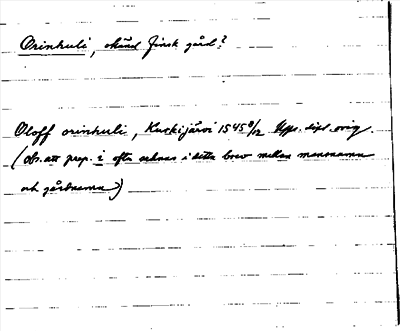 Orinkuli, okänd finsk gård?
Oloff orinkuli, Kuckijärvi 1545 8/12 Upps. dipl. orig.
(obs. att prep. i ofta saknas i detta brev mellan mansnamn
och gårdnamn)